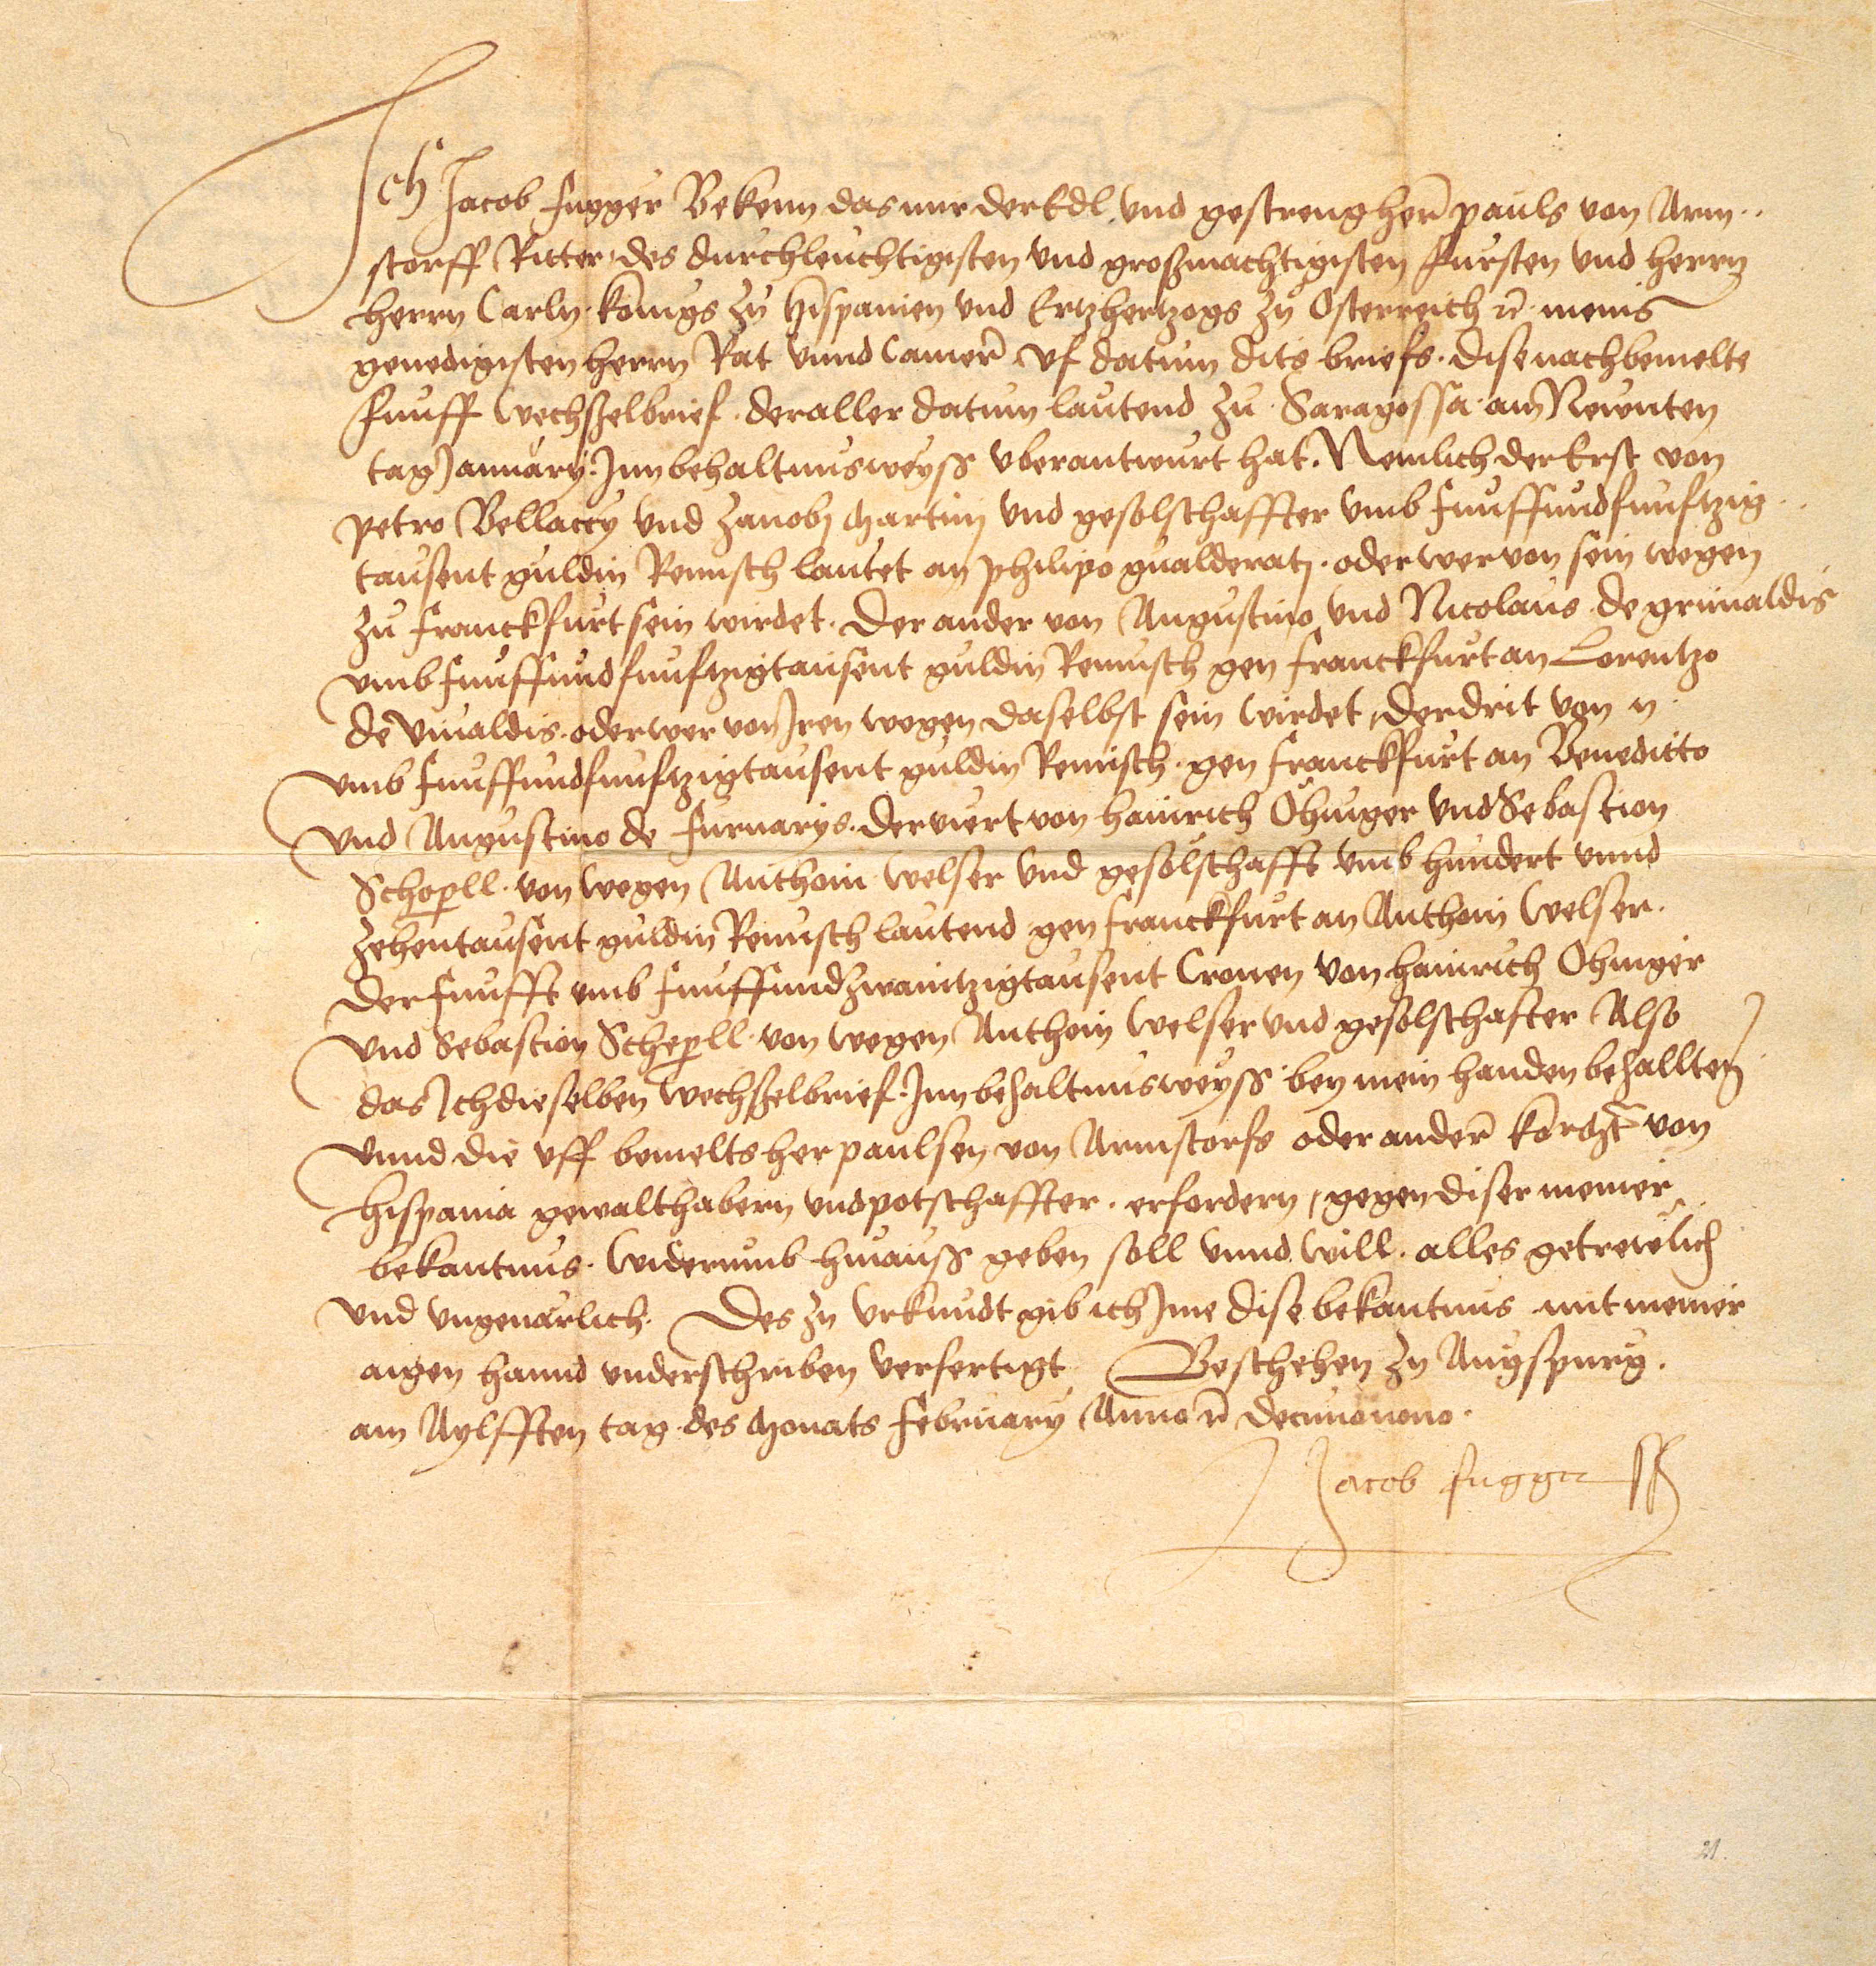 Ich Jacob Fugger Bekenn das mir der Edl und gestreng her̄ pauls von Arm..
storff Ritter, des durchleuchtigisten und großmachtigisten fursten und herrn
herrn Carln konigs zu hispanien und Ertzhertzogs zu Osterreich ꝛc̄ meins
genedigisten herrn Rat unnd Camer̄ uf datum dits briefs. dise nachbemelte
funff wechsselbrief. der aller datum lautend zu Saragossa am Newnten
tag January. Inn behaltnusweyss uberantwurt hat. Nemlich der Erst von
petro Bellaccy und zanobj Martinj und gesolschaffter umb funffundfunftzig
tausent guldin Reinisch lautet an philipo gualderatj. oder wer von sein wegen
zu franckfurt sein wirdet. Der ander von Augustino und Nicolaus de grimaldis
umb funffundfunftzigtausent guldin Reinisch gen franckfurt an Lorentzo
de vivaldis. oder wer von Iren wegen daselbst sein wirdet, der drit von n.
umb funffundfunftzigtausent guldin Reinisch. gen franckfurt an Beneditto
und Augustino de furnarys. der viert von hainrich Öhinger und Sebastion
Schopll. von wegen Anthoin welser und gesolschafft umb hundert unnd
zehentausent guldin Reinisch lautend gen franckfurt an Anthoin Welser.
Der funfft umb funffundzwaintzigtausent Cronen von hainrich Öhinger
und Sebastion Schepll. von wegen Anthoin Welser und gesolschafter Also
das Ich dieselben wechsselbrief. Inn behaltnusweyss bey mein handen behallten
unnd die uff bemelts her paulsen von Armstorfs oder ander̄ von
hispania gewalthabern und potschaffter. erfordern, gegen diser meiner
bekantnus. widerumb hinauss geben soll unnd will. alles getrewlich
und ungevarlich. Des zu urkundt gib ich Ime dise bekantnus mit meiner
aigen hannd underschriben verfertigt Beschehen zu Augspurg.
am Aylfften tag des Monats february Anno ꝛc̄ decimonono.
Jacob fugger
21.